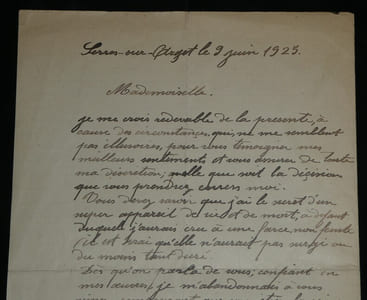 Serres-sur-Arget le 9 juin 1925.
Mademoiselle.
je me crois redevable de la presente, à
cause des circonstances, qui, ne me semblent
pas illusoires, pour vous temoigner mes
meilleurs sentements et vous assurer de toute
ma discretion; quelle que soit la décision
que vous prendrez envers moi.
Vous devez savoir que j'ai le secret d'un
super appareil de vie et de mort, à defaut
duquel j'aurais cru à une farce, non feinte
(il est vrai qu'elle n'aurait pas surgi ou
du moins tant duré.
Dès qu'on parla de vous; confiant en
mes œuvres, je m'abandonnais à vous